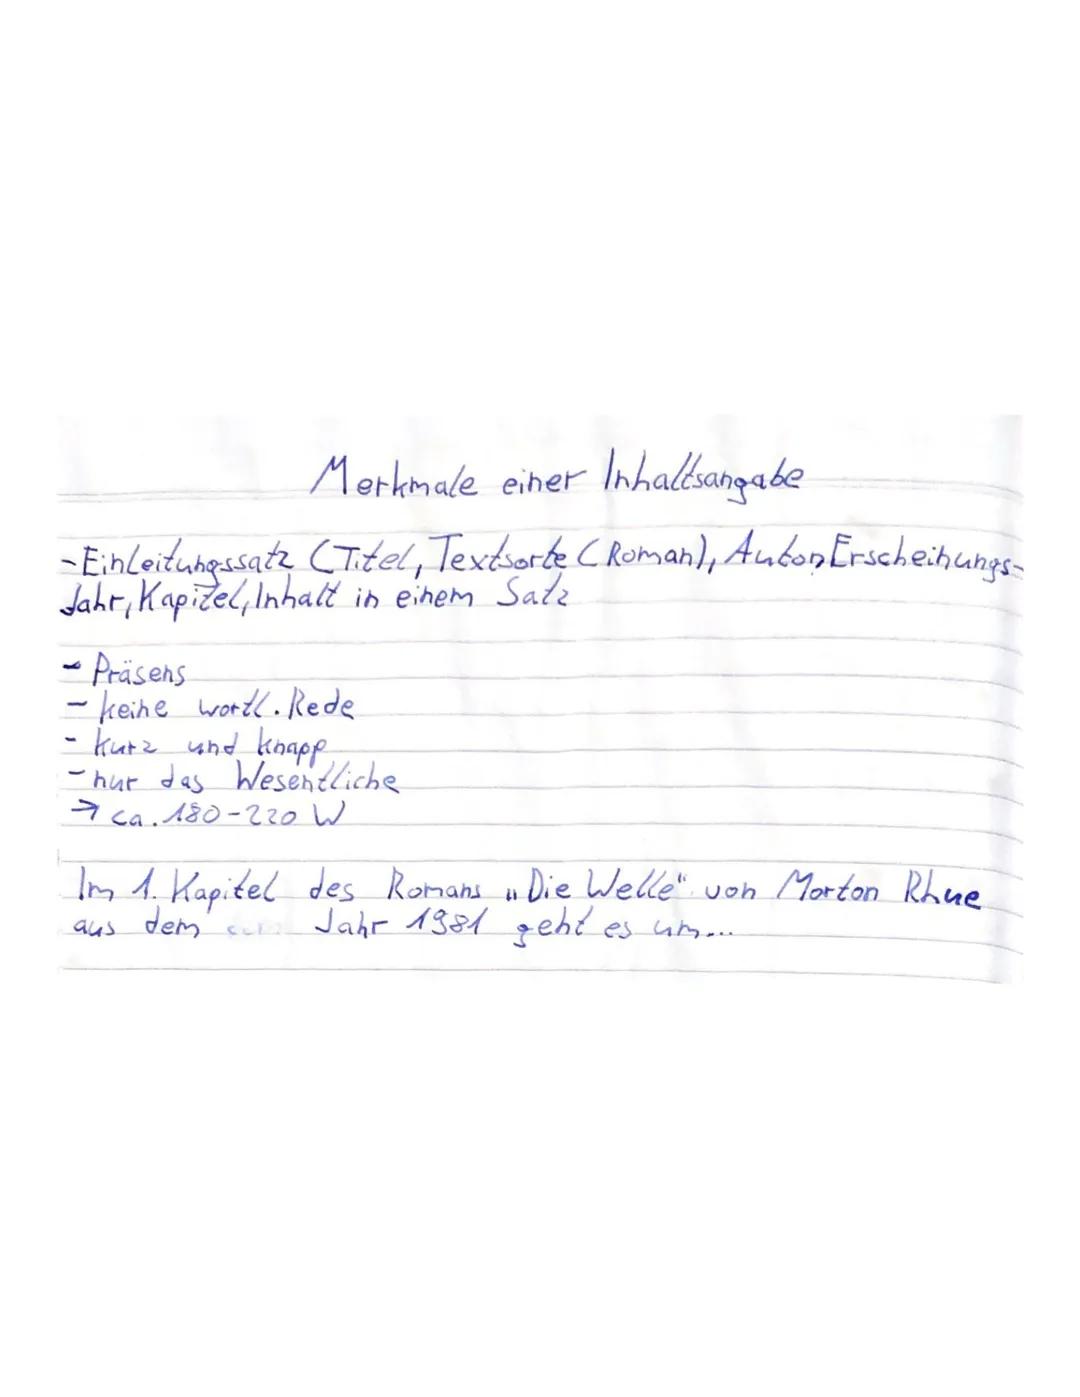 Merkmale einer Inhaltsangabe
-Einleitungssatz (Titel, Textsorte (Roman), Autor, Erscheinungs-
Jahr, Kapitel, Inhalt in einem Satz
- Präsens
- keine wortl. Rede
- kurz und knapp
- nur das Wesentliche
→ ca. 180-220 W
Im 1. Kapitel des Romans „Die Welle" von Morton Rhue
aus dem Jahr 1981 geht es um...